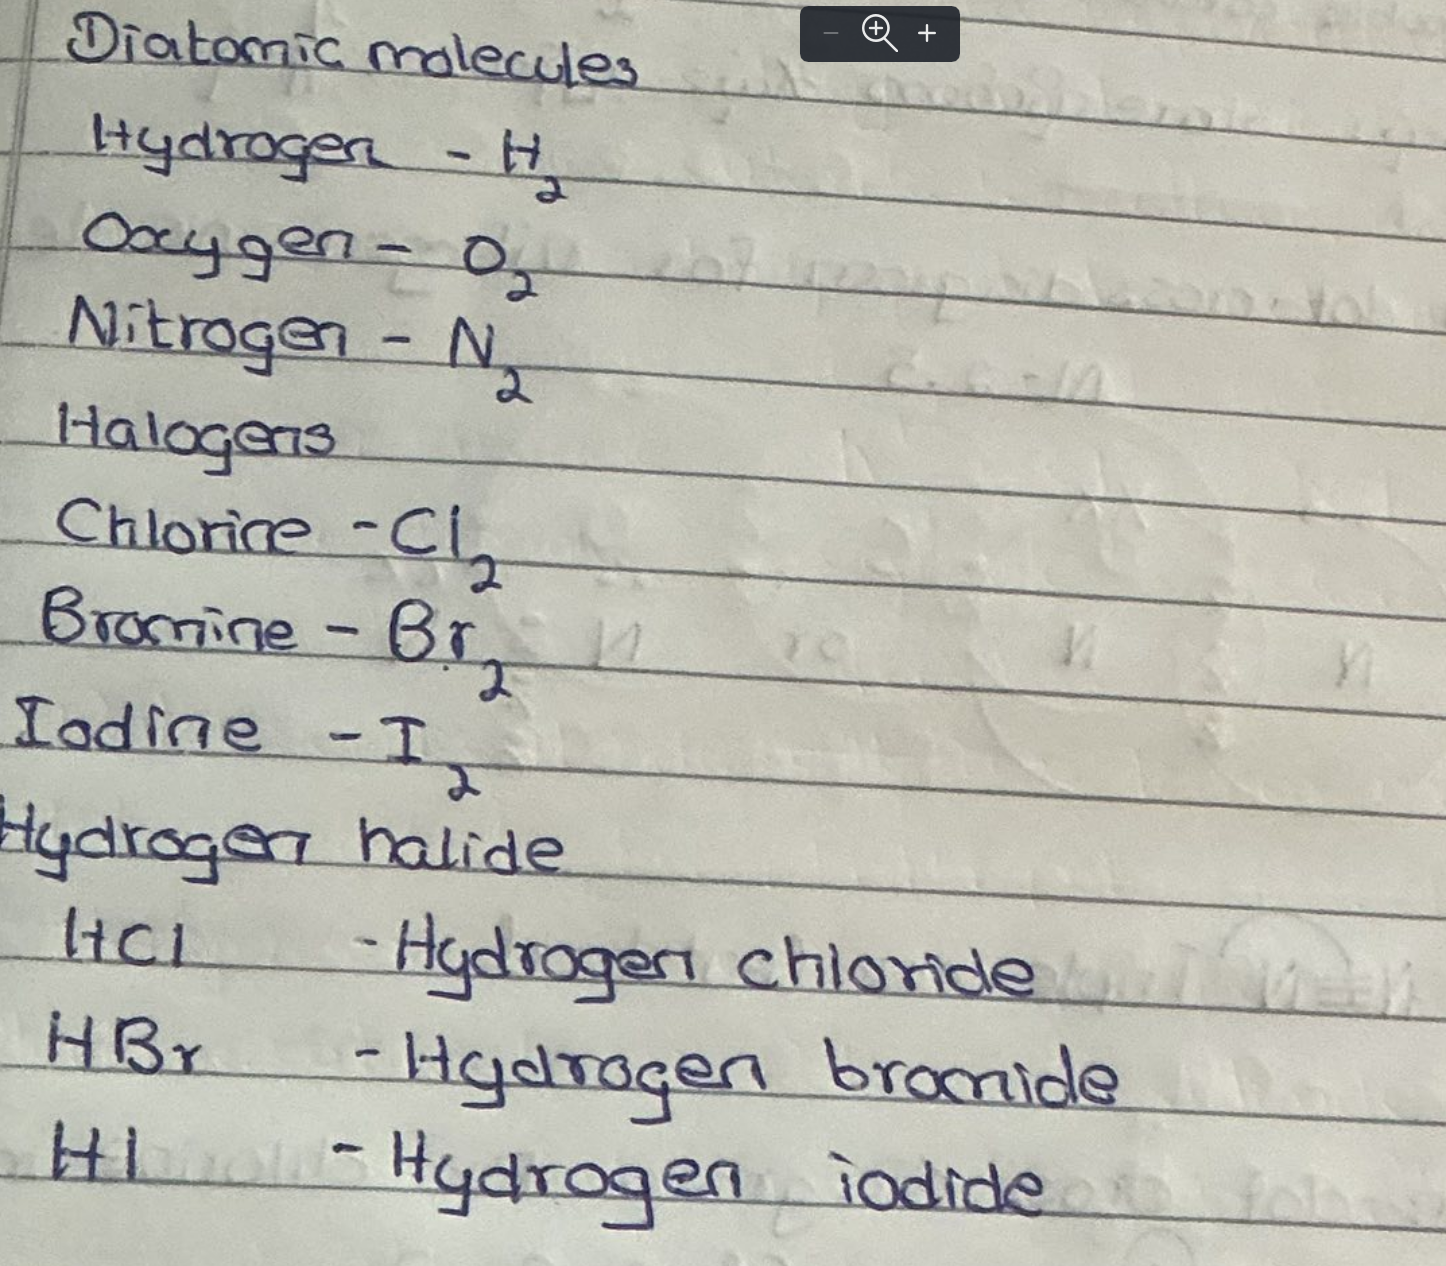 Diatomic molecules
Hydrogen - H₂
Oxygen - O₂
Nitrogen - N₂
Halogens
Chlorine - Cl₂
Bromine - Br₂
Iodine - I₂
Hydrogen halide
HCl - Hydrogen chloride
HBr - Hydrogen bromide
HI - Hydrogen iodide